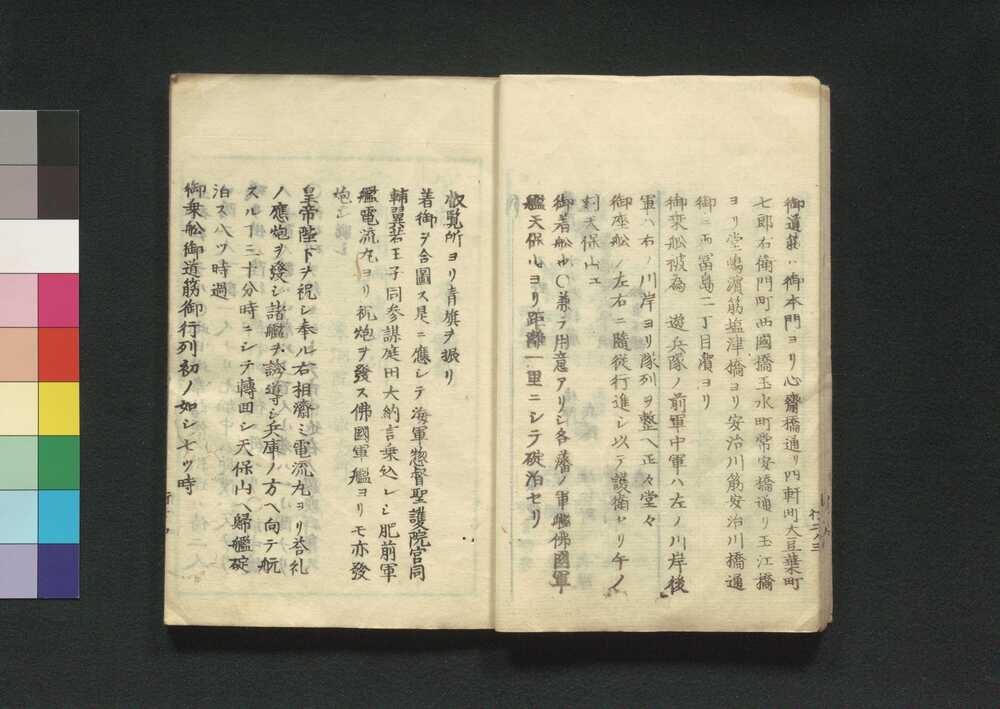 御道筋ハ御本門ヨリ心齋橋通リ四軒町大豆葉町
七郎右衛門町西國橋玉水町常安橋通リ玉江橋
ヨリ堂嶋濱筋塩津橋ヨリ安治川筋安治川橋通
御ニ而冨島二丁目濱ヨリ
御乗舩被為 遊兵隊ノ前軍中軍ハ左ノ川岸後
軍ハ右ノ川岸ヨリ隊列ヲ整ヘ正々堂々
御座舩ノ左右ニ隨従行進シ以テ護衛セリ午ノ
刻天保山エ
御着舩也〇兼テ用意アリシ各藩ノ軍艦佛國軍
艦天保山ヨリ距離一里ニシテ碇泊セリ
叡覧所ヨリ青旗ヲ振リ
着御ヲ合圖ス是ニ應シテ海軍惣督聖護院宮同
輔翼若王子同参謀庭田大納言乗込レシ肥前軍
艦電流丸ヨリ祝炮ヲ發ス佛國軍艦ヨリモ亦發
炮シ
皇帝陛下ヲ祝シ奉ル右相濟ミ電流丸ヨリ荅礼
ノ應炮ヲ發シ諸艦ヲ誘導シ兵庫ノ方ヘ向テ航
スルヿ二十分時ニシテ轉回シ天保山ヘ歸艦碇
泊ス八ツ時過
御乗舩御道筋御行列初ノ如シ七ツ時